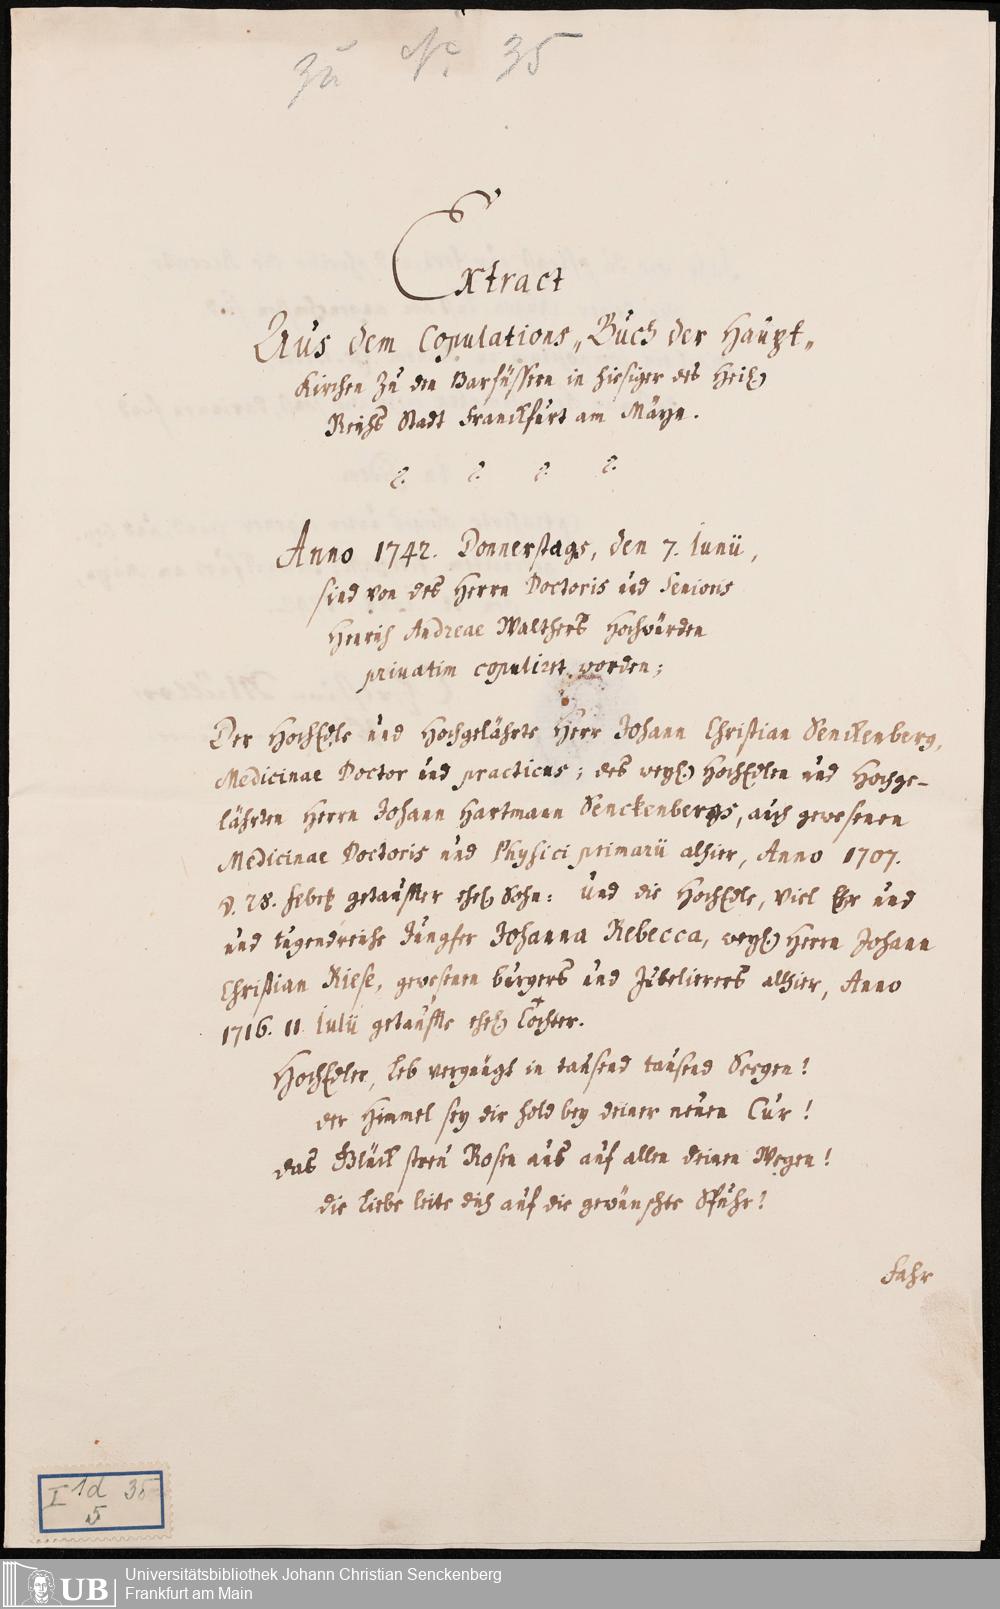 zu No. 35
Extract
Aus dem Copulations„Buch der Haupt„
Kirchen zu den Barfüssern in hiesiger des Heil.
Reichs Stadt Franckfurt am Mayn.
Anno 1742. Donnerstags, den 7. Iunii,
sind von des Herrn Doctoris und Senioris
Henrich Andreae Walthers Hochwürden
privatim copuliret worden;
Der HochEdle und Hochgelährte Herr Johann Christian Senckenberg,
Medicinae Doctor und practicus; des weyl. HochEdlen und Hochge-
lährten Herrn Johann Hartmann Senckenbergs, auch gewesenen
Medicinae Doctoris und Physici primarii alhier, Anno 1707.
d. 28. Febr. getauffter ehel. Sohn: Und die HochEdle, Viel Ehr und
und tugendreiche Jungfer Johanna Rebecca, weyl. Herrn Johann
Christian Riese, gewesenen burgers und Jubelierers alhier, Anno
1716. 11. Iulii getauffte ehel. Tochter.
HochEdler, leb vergnügt in tausend tausend Seegen!
der Himmel sey dir hold bey deiner neuen Cur!
das Glück streu Rosen aus auf allen deinen Wegen!
die Liebe leite dich auf die gewünschte Spuhr!
Fahr
I 1d 35
5
UB
Universitätsbibliothek Johann Christian Senckenberg
Frankfurt am Main